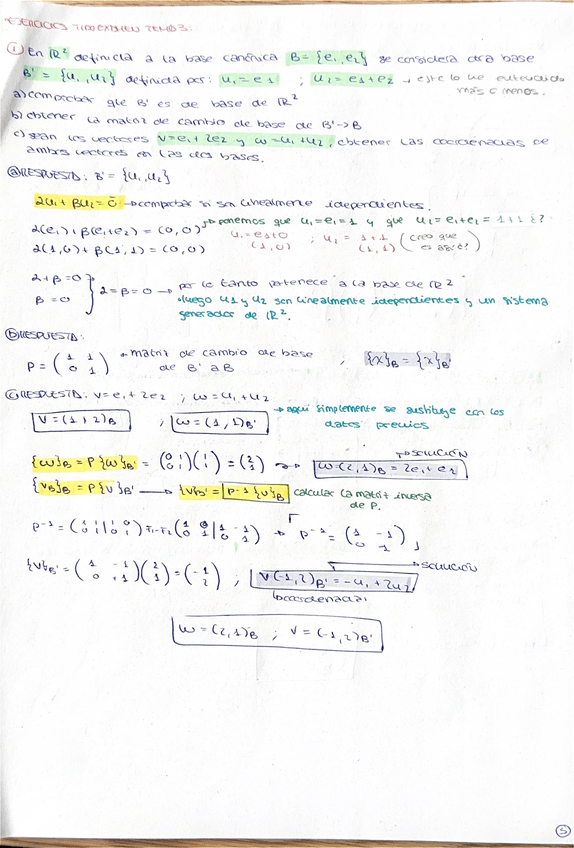 EJERCICIOS TIPO EXAMEN TEMA 3:
① En ℝ² definida a la base canónica B = {e₁, e₂} se considera otra base
B' = {u₁, u₂} definida por: u₁ = e1 ; u₂ = e1 + e2 → este lo he entendido más o menos.
a) comprobar que B' es de base de ℝ²
b) obtener la matriz de cambio de base de B' → B
c) sean los vectores v = e₁ + 2e2 y w = u₁ + u₂, obtener las coordenadas de
ambos vectores en las dos bases.
ⓐ RESPUESTA: B' = {u₁, u₂}
αu₁ + βu₂ = 0̄ → comprobar si son linealmente idependientes.
α(e₁) + β(e₁+e₂) = (0,0) → ponemos que u₁ = e₁ = 1 y que u₂ = e₁+e₂ = 1+1 ¿?
u₁ = e₁+0 ; u₂ = 1+1 (creo que
(1,0) (1,1) es aquí?)
α(1,0) + β(1,1) = (0,0)
α + β = 0
β = 0 } α = β = 0 → por lo tanto pertenece a la base de ℝ²
• luego u1 y u2 son linealmente idependientes y un sistema
generador de ℝ².
ⓑ RESPUESTA:
P = (1 1 / 0 1) → matriz de cambio de base de B' a B ; {x}B = {x}B'
ⓒ RESPUESTA: v = e₁ + 2e2 ; w = u₁ + u₂
V = (1+2)B ; w = (1,1)B' → aquí simplemente se sustituye con los
datos previos
{w}B = P{w}B' = (0 1 / 0 1)(1 / 1) = (2 / 1) → w(2,1)B = 2e₁ + e₂ → SOLUCIÓN
{vB}B = P{v}B' → {v}B' = P⁻¹{v}B calcular la matriz inversa
de P.
P⁻¹ = (1 1 | 1 0 / 0 1 | 0 1) F₁-F₂ (1 0 | 1 -1 / 0 1 | 0 1) → P⁻¹ = (1 -1 / 0 1)
{v}B' = (1 -1 / 0 1)(1 / 2) = (-1 / 2) ; v(-1,2)B' = -u₁ + 2u₂ → SOLUCIÓN
coordenadas
w = (2,1)B ; v = (-1,2)B'
5